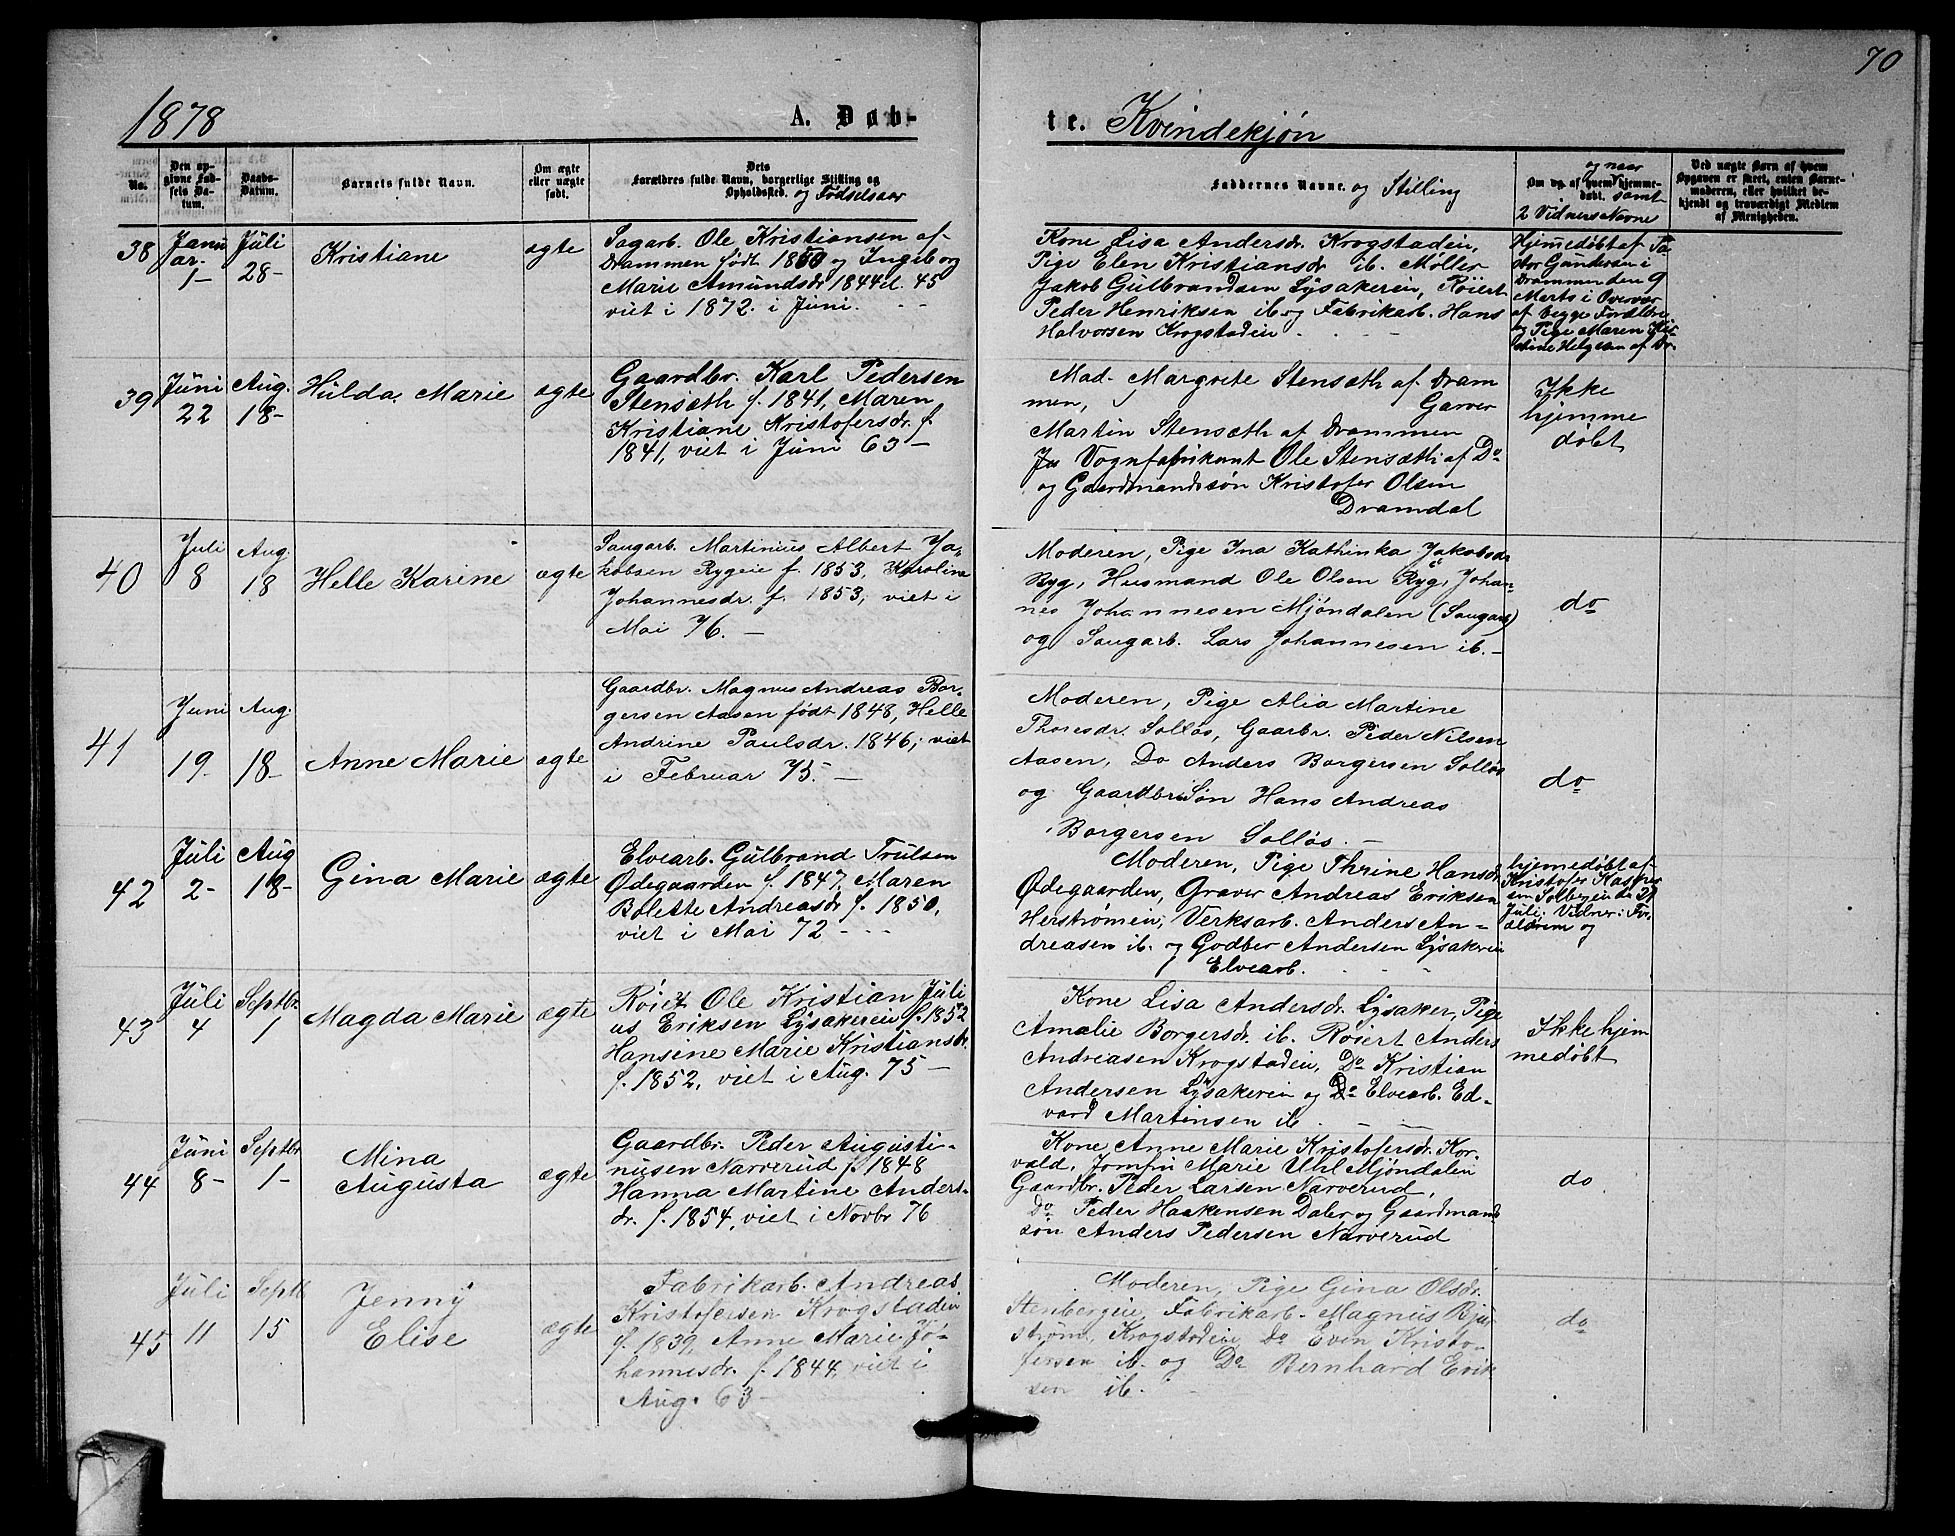 70
1878
A. Døb-
te. Kvindekjøn
No.
Den op-
givne Fød-
sels Da-
tum.
Daabs-
Datum.
Barnets fulde Navn.
Om ægte
eller uægte
født.
Dets
Forældres fulde Navn, borgerlige Stilling og
Opholdssted. og Fødselsaar
Faddernes Navne. og Stilling
og naar
Om og af hvem hjemme-
døbt. samt
2 Vidners Navne
Ved uægte Børn af hvem
Opgaven er skeet, enten Barne-
moderen, eller hvilket be-
kjendt og troværdigt Medlem
af Menigheden.
38
Janu
ar.
1-
Juli
28-
Kristiane
ægte
Sagarb. Ole Kristiansen af
Drammen født 1850 og Ingeborg
Marie Amundsdr 1844 d. 45
viet i 1872. i Juni.
Kone Lisa Andersdr. Krogstadein,
Pige Elen Kristiansdr ib. Møller
Jakob Gulbrandsen Lysakerein, Röiert
Peder Henriksen ib. og Fabrikarb. Hans
Halvorsen Krogstadein
Hjemedöbt af Pa-
stor Gundersen i
Drammen den 9
Marts i Overvær
af begge Forældre
og Pige Maren Kri-
stine Helgesen af Dr.
39
Juni
22
Aug.
18-
Hulda Marie
ægte
Gaardbr. Karl Pedersen
Stensæth f. 1841, Maren
Kristiane Kristofersdr. f.
1841, viet i Juni 63-
Mad. Margrete Stensæth af Dram
men, Garver
Martin Stensæth af Drammen
Vognfabrikant Ole Stensæth af Do
og Gaardmandssön Kristofer Olsen
Dramdal
Ikke
hjemme
döbt
40
Juli
8
Aug.
18
Helle Karine
ægte
Saugarb. Martinius Albert Ja-
kobsen Rygeie f. 1853, Karoline
Johannesdr. f. 1853, viet i
Mai 76. -
Moderen, Pige Ina Kathinka Jakobsdr
Ryg, Husmand Ole Olsen Ryg, Johan-
nes Johannesen Mjöndalen (Saugarb)
og Saugarb. Lars Johannesen ib. -
do
41
Juni
19
Aug.
18-
Anne Marie
ægte
Gaardbr. Magnus Andreas Bor-
gersen Aasen født 1848, Helle
Andrine Paulsdr. 1846; viet
i Februar 75. -
Moderen, Pige Alia Martine
Thoresdr. Solløs, Gaarbr. Peder Nilsen
Aasen, Do Anders Borgersen Solløs
og Gaardbr. Søn Hans Andreas
Borgersen Solløs. -
do
42
Juli
2-
Aug
18-
Gina Marie
ægte
Elvearb. Gulbrand Trulsen
Ødegaarden f. 1847, Maren
Bolette Andreasdr f. 1850,
viet i Mai 72 -
Moderen, Pige Thrine Hansdr.
Ødegaarden, Graver Andreas Eriksen
Herstrømen, Verksarb. Anders An-
dreasen ib. og Godber Andersen Lysakerein
Elvearb.
hjemedøbt af
Kristofer Kasper
sen Solbergein den 21
Juli. Vidner: For
ældrene og
43
Juli
4
Septbr.
1
Magda Marie
ægte
Röiert Ole Kristian Juli
us Eriksen Lysakerein f. 1852
Hansine Marie Kristiansdr.
f. 1852, viet i Aug. 75 -
Kone Lisa Andersdr. Lysaker, Pige
Amalie Borgersdr. ib. Röiert Anders
Andreasen Krogstadein, Do Kristian
Andersen Lysakerein og Do Elvearb. Ed-
vard Martinsen ib.
Ikke hjem
medöbt
44
Juni
8-
Septbr
1-
Mina
Augusta
ægte
Gaardbr. Peder Augusti-
nusen Narverud f. 1848
Hanna Martine Anders-
dr. f. 1854, viet i Novbr 76
Kone Anne Marie Kristofersdr. Kor-
vald, Jomfru Marie Uhl Mjöndalen
Gaardbr. Peder Larsen Narverud,
Do Peder Haakensen Daler og Gaardmand
søn Anders Pedersen Narverud
do
45
Juli
11
Septb
15
Jenny
Elise
ægte
Fabrikarb. Andreas
Kristofersen Krogstadein
f. 1839, Anne Marie Jo-
hannesdr. f. 1844, viet i
Aug. 63-
Moderen, Pige Gina Olsdr.
Stenbergeie, Fabrikarb. Magnus Bjur
strøm, Krogstadein, Do Even Kristo-
fersen ib. og Do Bernhard Erik
sen ib.
do